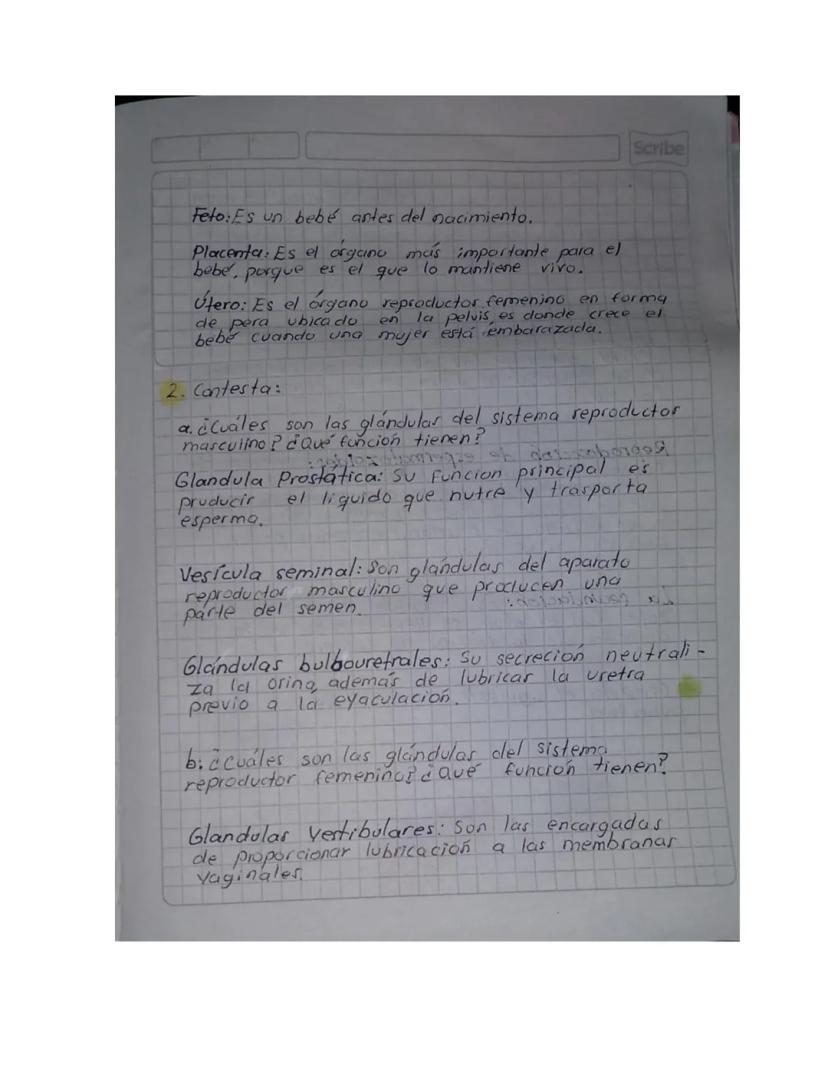 Scribe
Feto: Es un bebé antes del nacimiento.
Placenta: Es el órgano más importante para el
bebé, porque es el que lo mantiene vivo.
Útero: Es el órgano reproductor femenino en forma
de pera ubicado en la pelvis, es donde crece el
bebé cuando una mujer está embarazada.
2. Contesta:
a. ¿Cuáles son las glándulas del sistema reproductor
masculino? ¿Qué función tienen?
Glandula Prostática: Su Funcion principal es
producir el líquido que nutre y trasporta
esperma.
Vesícula seminal: Son glándulas del aparato
reproductor masculino que producen una
parte del semen.
Glándulas bulbouretrales: Su secreción neutrali-
za la orina, además de lubricar la uretra
previo a la eyaculación.
b. ¿Cuáles son las glándulas del sistema
reproductor femenino? ¿Qué función tienen?
Glandulas Vestibulares: Son las encargadas
de proporcionar lubricación a las membranas
vaginales.